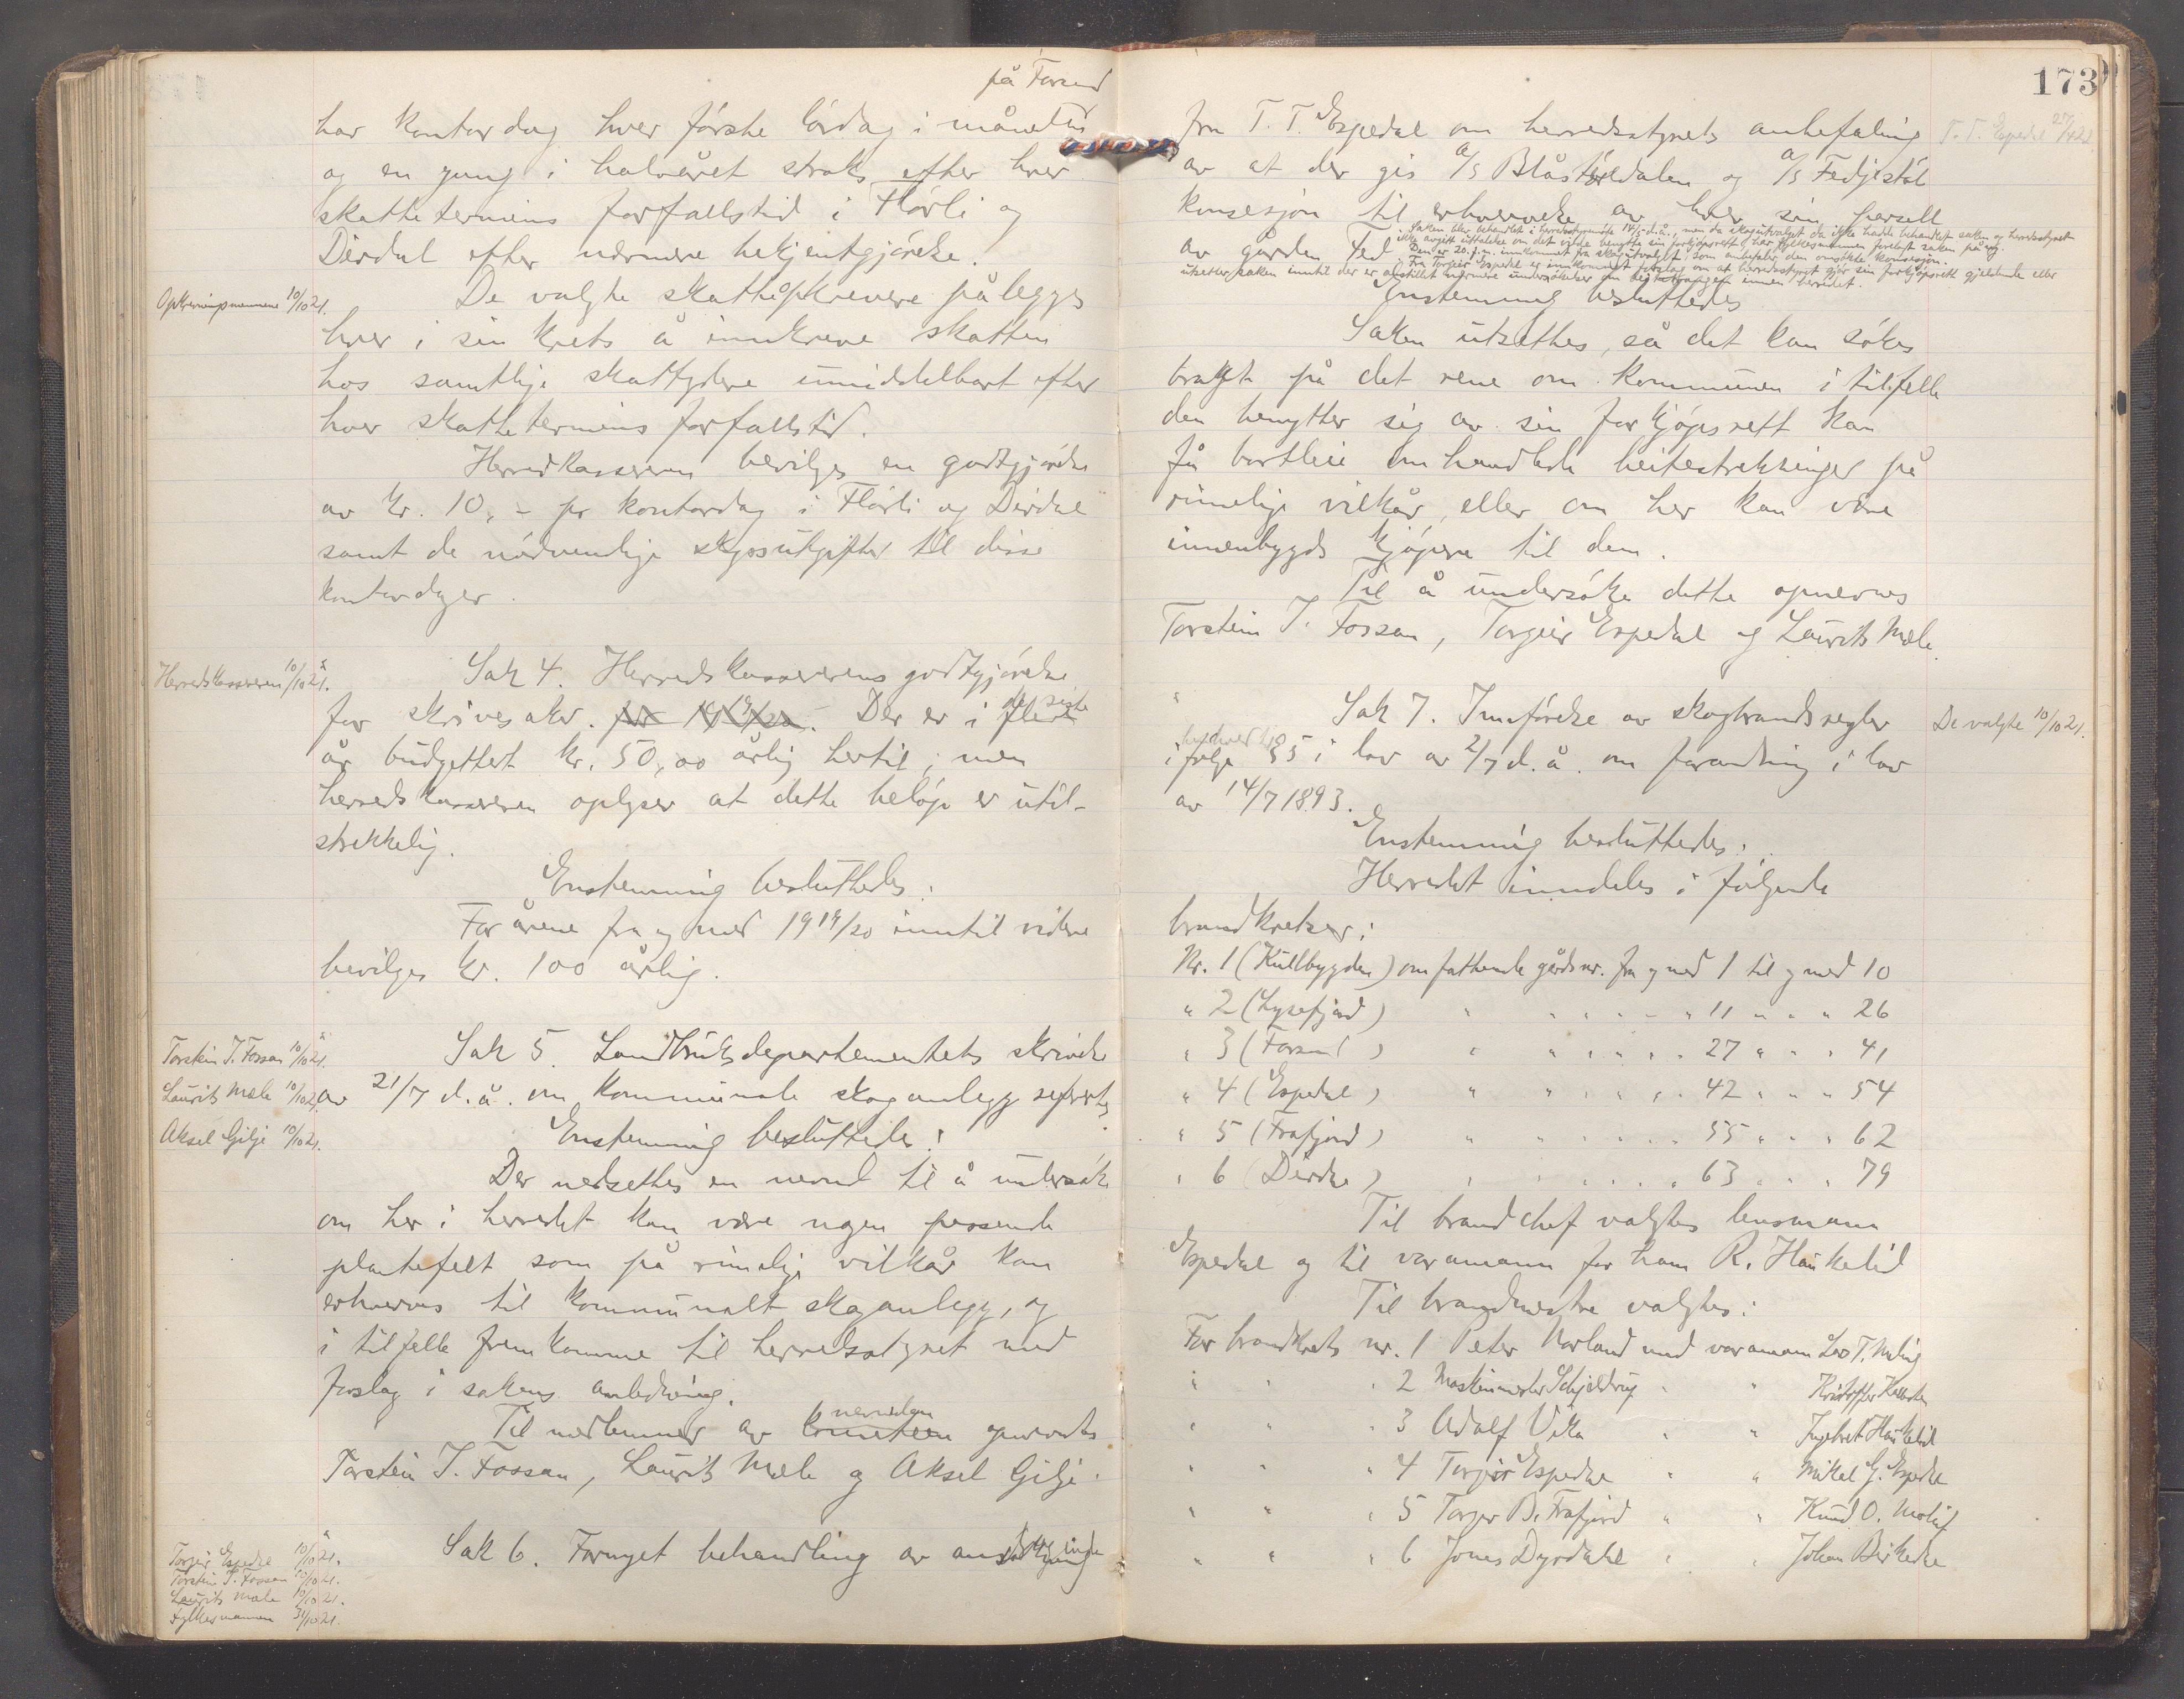 på Forsand
har kontordag hver første lørdag i måneden
og en gang i halvåret straks efter hver
skattetermins forfallstid i Flørli og
Dirdal efter nærmere bekjentgjørelse.
Opkrevningsmennene 10/10 21.
De valgte skatteopkrevere pålegges
hver i sin krets å innkreve skatten
hos samtlige skattydere umiddelbart efter
hver skattetermins forfallstid.
Herredskassereren bevilges en godtgjørelse
av kr. 10,- pr kontordag i Flørli og Dirdal
samt de nødvendige skyssutgifter til disse
kontordager.
Herredskassereren 10/10 21.
Sak 4. Herredskassererens godtgjørelse
for skrivesaker. Der er i de siste
år budgettert kr. 50,00 årlig hertil; men
herredskassereren oplyser at dette beløp er util-
strekkelig.
Enstemmig besluttedes:
For årene fra og med 1919/20 inntil videre
bevilges kr. 100 årlig.
Torstein T. Fossan 10/10 21.
Laurits Mæle 10/10 21.
Aksel Gilje 10/10 21.
Sak 5. Landbruksdepartementets skrivelse
av 21/7 d.å. om kommunale skoganlegg refertes
Enstemmig besluttedes:
Der nedsettes en nevnd til å undersøke
om her i herredet kan være nogen passende
plantefelt som på rimelige vilkår kan
erhverves til kommunalt skoganlegg, og
i tilfelle fremkomme til herredsstyret med
forslag i sakens anledning.
Til medlemmer av komiteen nevnden opnevntes
Torstein T. Fossan, Laurits Mæle og Aksel Gilje.
Torgeir Espedal 10/10 21.
Torstein T. Fossan 10/10 21.
Laurits Mæle 10/10 21.
Fylkesmannen 31/10 21.
Sak 6. Fornyet behandling av
173
T. T. Espedal
fra T. T. Espedal om herredsstyrets anbefaling
av at der gis A/S Blåstøldalen og A/S Fedjestøl
konsesjon til erhvervelse av hver sin parsell
av gården Fed.
Saken blev behandlet i herredsstyremøte 14/5 d.å., men da skogutvalget da ikke hadde behandlet saken og herredsstyret
ikke avgitt uttalelse om det vilde benytte sin forkjøpsrett, har fylkesmannen forelagt saken på ny.
Den er 20. f.m. innkommet fra skogutvalget, som anbefaler den omsøkte konsesjon.
Fra Torgeir Espedal er innkommet forslag om at herredsstyret gjør sin forkjøpsrett gjeldende eller
utsetter saken inntil der er anstillet nærmere undersøkelser om innen herredet.
Enstemmig besluttedes
Saken utsettes, så det kan søkes
bragt på det rene om kommunen i tilfelle
den benytter sig av sin forkjøpsrett kan
få bortleie omhandlede beitestrekninger på
rimelige vilkår, eller om her kan være
innenbygds kjøpere til dem.
Til å undersøke dette opnevnes
Torstein T. Fossan, Torgeir Espedal og Laurits Mæle.
De valgte 10/10 21.
Sak 7. Innførelse av skogbrandsregler
ifølge §5 i lov av 2/7 d.å. om forandring i lov
av 14/7 1893.
Enstemmig besluttedes:
Herredet inndeles i følgende
brandkretser:
Nr. 1 (Kullbygden) omfattende gårdsnr. fra og med 1 til og med 10
" 2 (Lysefjord) " " " " " 11 " " " 26
" 3 (Forsand) " " " " " 27 " " " 41
" 4 (Espedal) " " " " " 42 " " " 54
" 5 (Frafjord) " " " " " 55 " " " 62
" 6 (Dirdal) " " " " " 63 " " " 79
Til brandchef valgtes lensmann
Espedal og til varamann for ham R. Haukalid
Til brandmestre valgtes:
For brandkrets nr. 1 Peter Norland med varamann
" " " 2 Maskinmester Schjeldrup " " Kristoffer
" " " 3 Adolf Vika " " Ingebret Haukalid
" " " 4 Torgeir Espedal " " Mikal G. Espedal
" " " 5 Torger B. Frafjord " " Knud O. Molaug
" " " 6 Jonas Dyrdahl " " Johan Birkedal